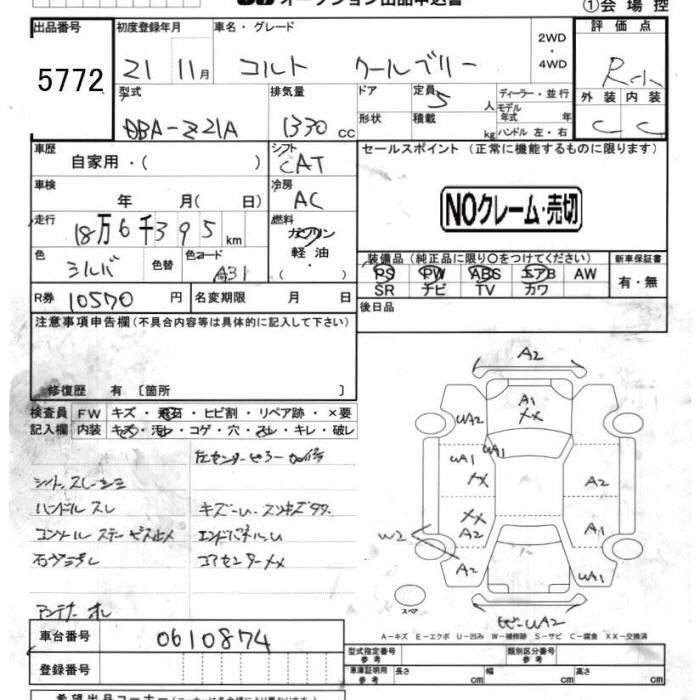 ①会場控
出品番号 初度登録年月 車名・グレード 2WD・4WD 評価点
5772 21 11月 コルト クールベリー R小
型式 排気量 ドア 定員 5人 ディーラー・並行 外装 内装
DBA-Z21A 1330cc 形状 積載 kg モデル年式 年 ハンドル 左・右 C C
車歴 自家用・( ) シフト CAT セールスポイント(正常に機能するものに限ります)
車検 年 月( 日) 冷房 AC NOクレーム・売切
走行 18万6千395km 燃料 ガソリン 軽油・( )
色 シルバ 色替 色コード A31 装備品(純正品に限り○をつけてください) 新車保証書
PS PW ABS エアB AW 有・無
SR ナビ TV カワ
R券 10570円 名変期限 月 日 後日品
注意事項申告欄(不具合内容等は具体的に記入して下さい)
修復歴 有〔箇所 〕
検査員 FW キズ・飛石・ヒビ割・リペア跡・×要
記入欄 内装 キズ・汚レ・コゲ・穴・スレ・キレ・破レ
左センターピラー
シート スレ シミ
ハンドル スレ キズ・U. スリキズ
コンソール
エンドパネルU
コアセンターXX
アンテナ オレ
A2
A1
XX
UA2
UA1 UA1
XX A2
XX
A2 A1
W2
A2 UA1
スペア
UA2
A-キズ E-エクボ U-凹み W-補修跡 S-サビ C-腐食 XX-交換済
車台番号 0610874 型式指定番号 参考 類別区分番号 参考
登録番号 車庫証明用 参考 長さ cm 幅 cm 高さ cm
希望出品コーナー